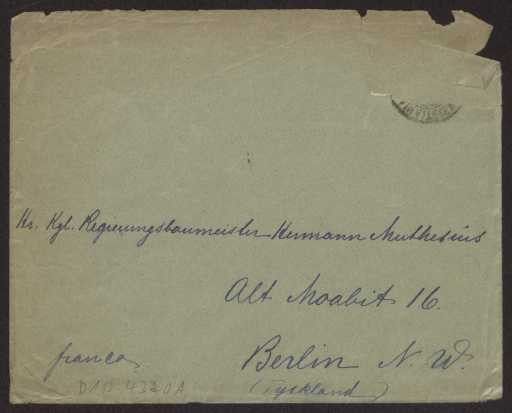 Hr. Kgl. Regierungsbaumeister Hermann Muthesius
Alt Moabit 16.
Berlin N. W.
(Tyskland)
franco